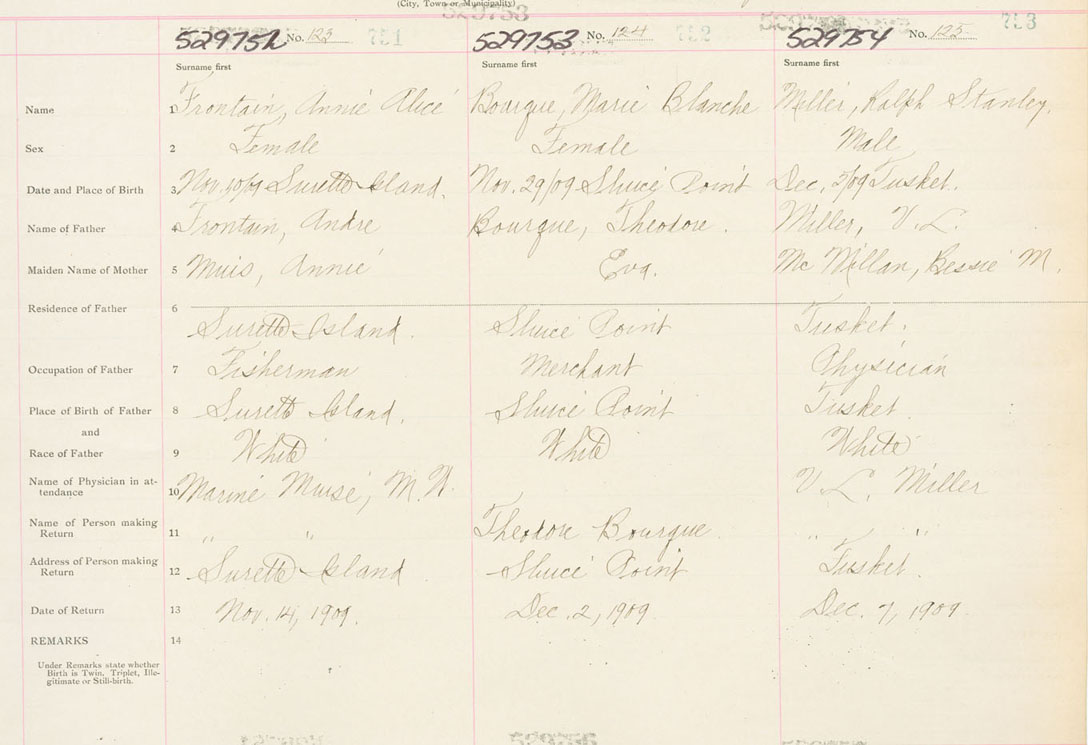 (City, Town or Municipality)
529753
529752 No. 123 751 529753 No. 124 752 529754 No. 125 753
Surname first Surname first Surname first
Name 1 Frontain, Annie Alice Bourque, Marie Blanche Miller, Ralph Stanley.
Sex 2 Female Female Male
Date and Place of Birth 3 Nov. 10/09 Surette Island. Nov. 29/09 Sluice Point Dec. 5/09 Tusket.
Name of Father 4 Frontain, Andre Bourque, Theodore. Miller, V. L.
Maiden Name of Mother 5 Muis, Annie Eva. Mc Millan, Bessie M.
Residence of Father 6
Surette Island. Sluice Point Tusket.
Occupation of Father 7 Fisherman Merchant Physician
Place of Birth of Father 8 Surette Island. Sluice Point Tusket.
and
Race of Father 9 White White White
Name of Physician in at-
tendance 10 Marine Muise, M. W. V. L. Miller
Name of Person making
Return 11 " " Theodore Bourque. " "
Address of Person making
Return 12 Surette Island Sluice Point Tusket.
Date of Return 13 Nov. 14, 1909. Dec. 2, 1909 Dec. 7, 1909.
REMARKS 14
Under Remarks state whether
Birth is Twin, Triplet, Ille-
gitimate or Still-birth.